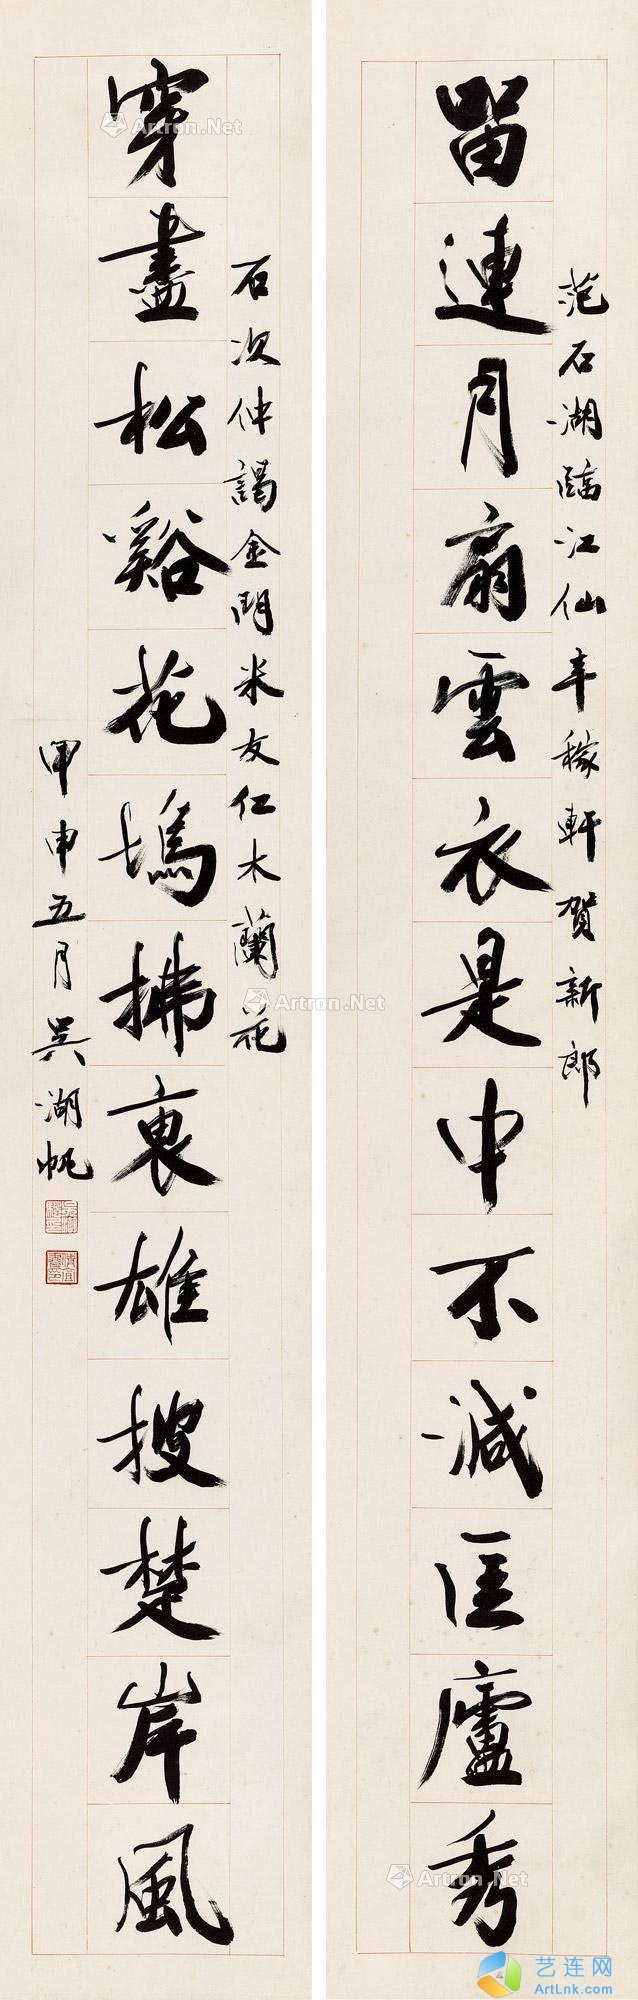 留連月扇雲衣是中不減匡廬秀
范石湖臨江仙辛稼軒賀新郎
穿盡松谿花塢拂裏雄搜楚岸風
石次仲謁金門米友仁木蘭花
甲申五月吳湖帆
Artron.Net
Artron.Net
Artron.Net
Artron.Net
Artron.Net
艺连网
ArtLnk.com